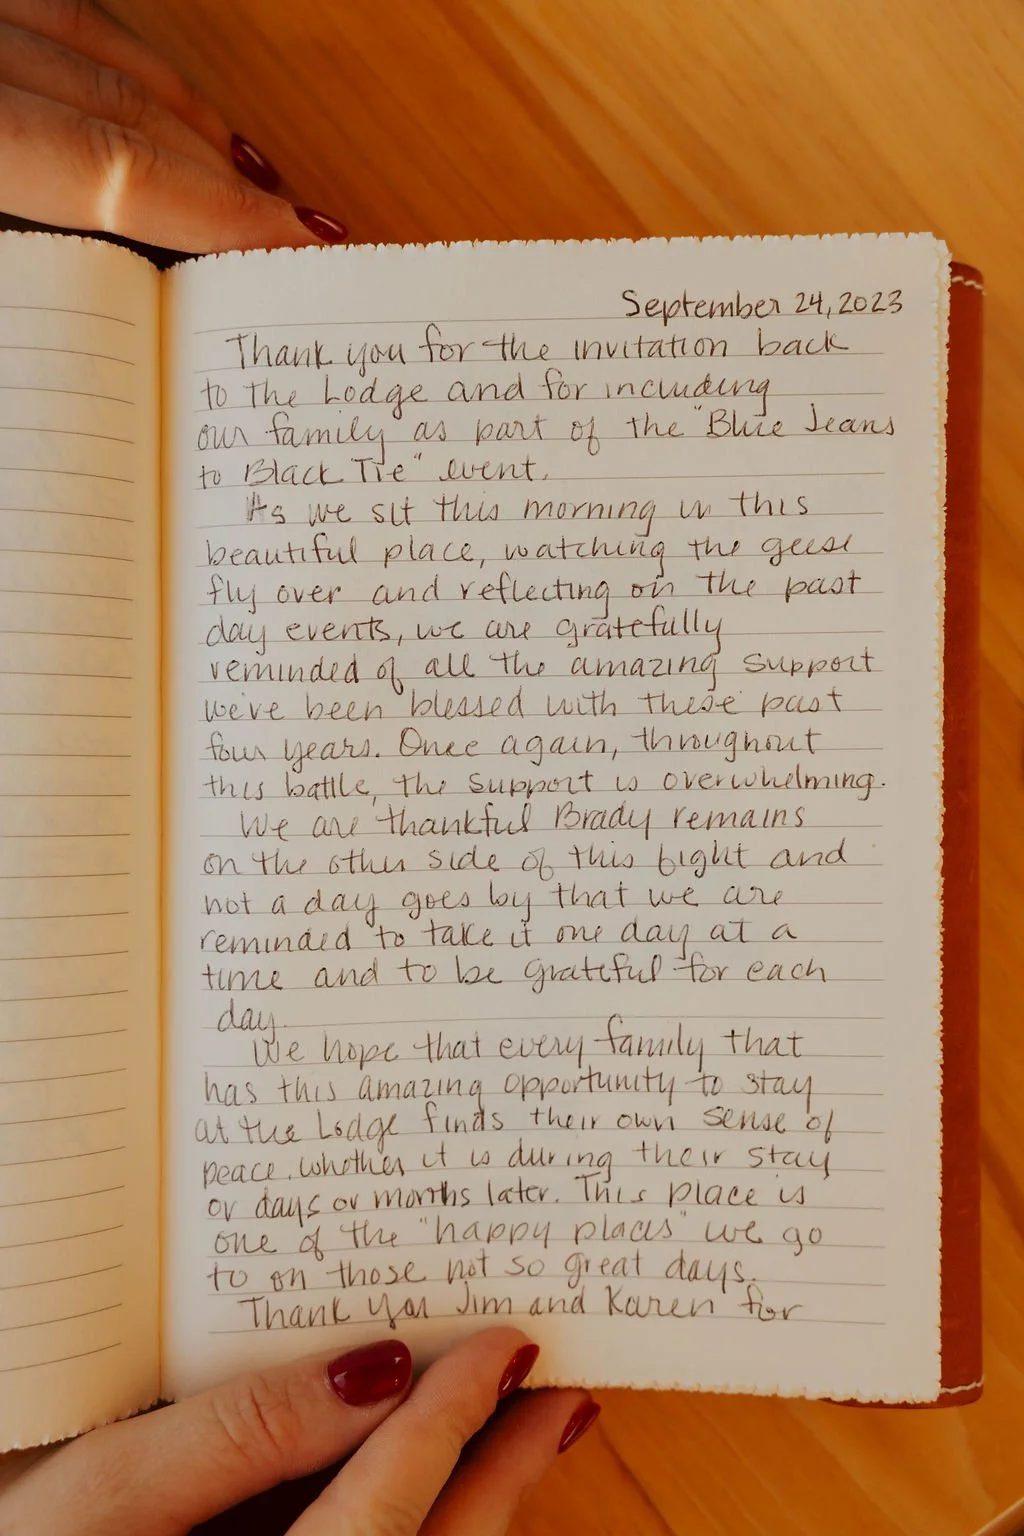 September 24, 2023
Thank you for the invitation back
to the Lodge and for including
our family as part of the "Blue Jeans
to Black Tie" event.
As we sit this morning in this
beautiful place, watching the geese
fly over and reflecting on the past
day events, we are gratefully
reminded of all the amazing support
we've been blessed with these past
four years. Once again, throughout
this battle, the support is overwhelming.
We are thankful Brady remains
on the other side of this fight and
not a day goes by that we are
reminded to take it one day at a
time and to be grateful for each
day.
We hope that every family that
has this amazing opportunity to stay
at the Lodge finds their own sense of
peace, whether it is during their stay
or days or months later. This place is
one of the "happy places" we go
to on those not so great days.
Thank you Jim and Karen for